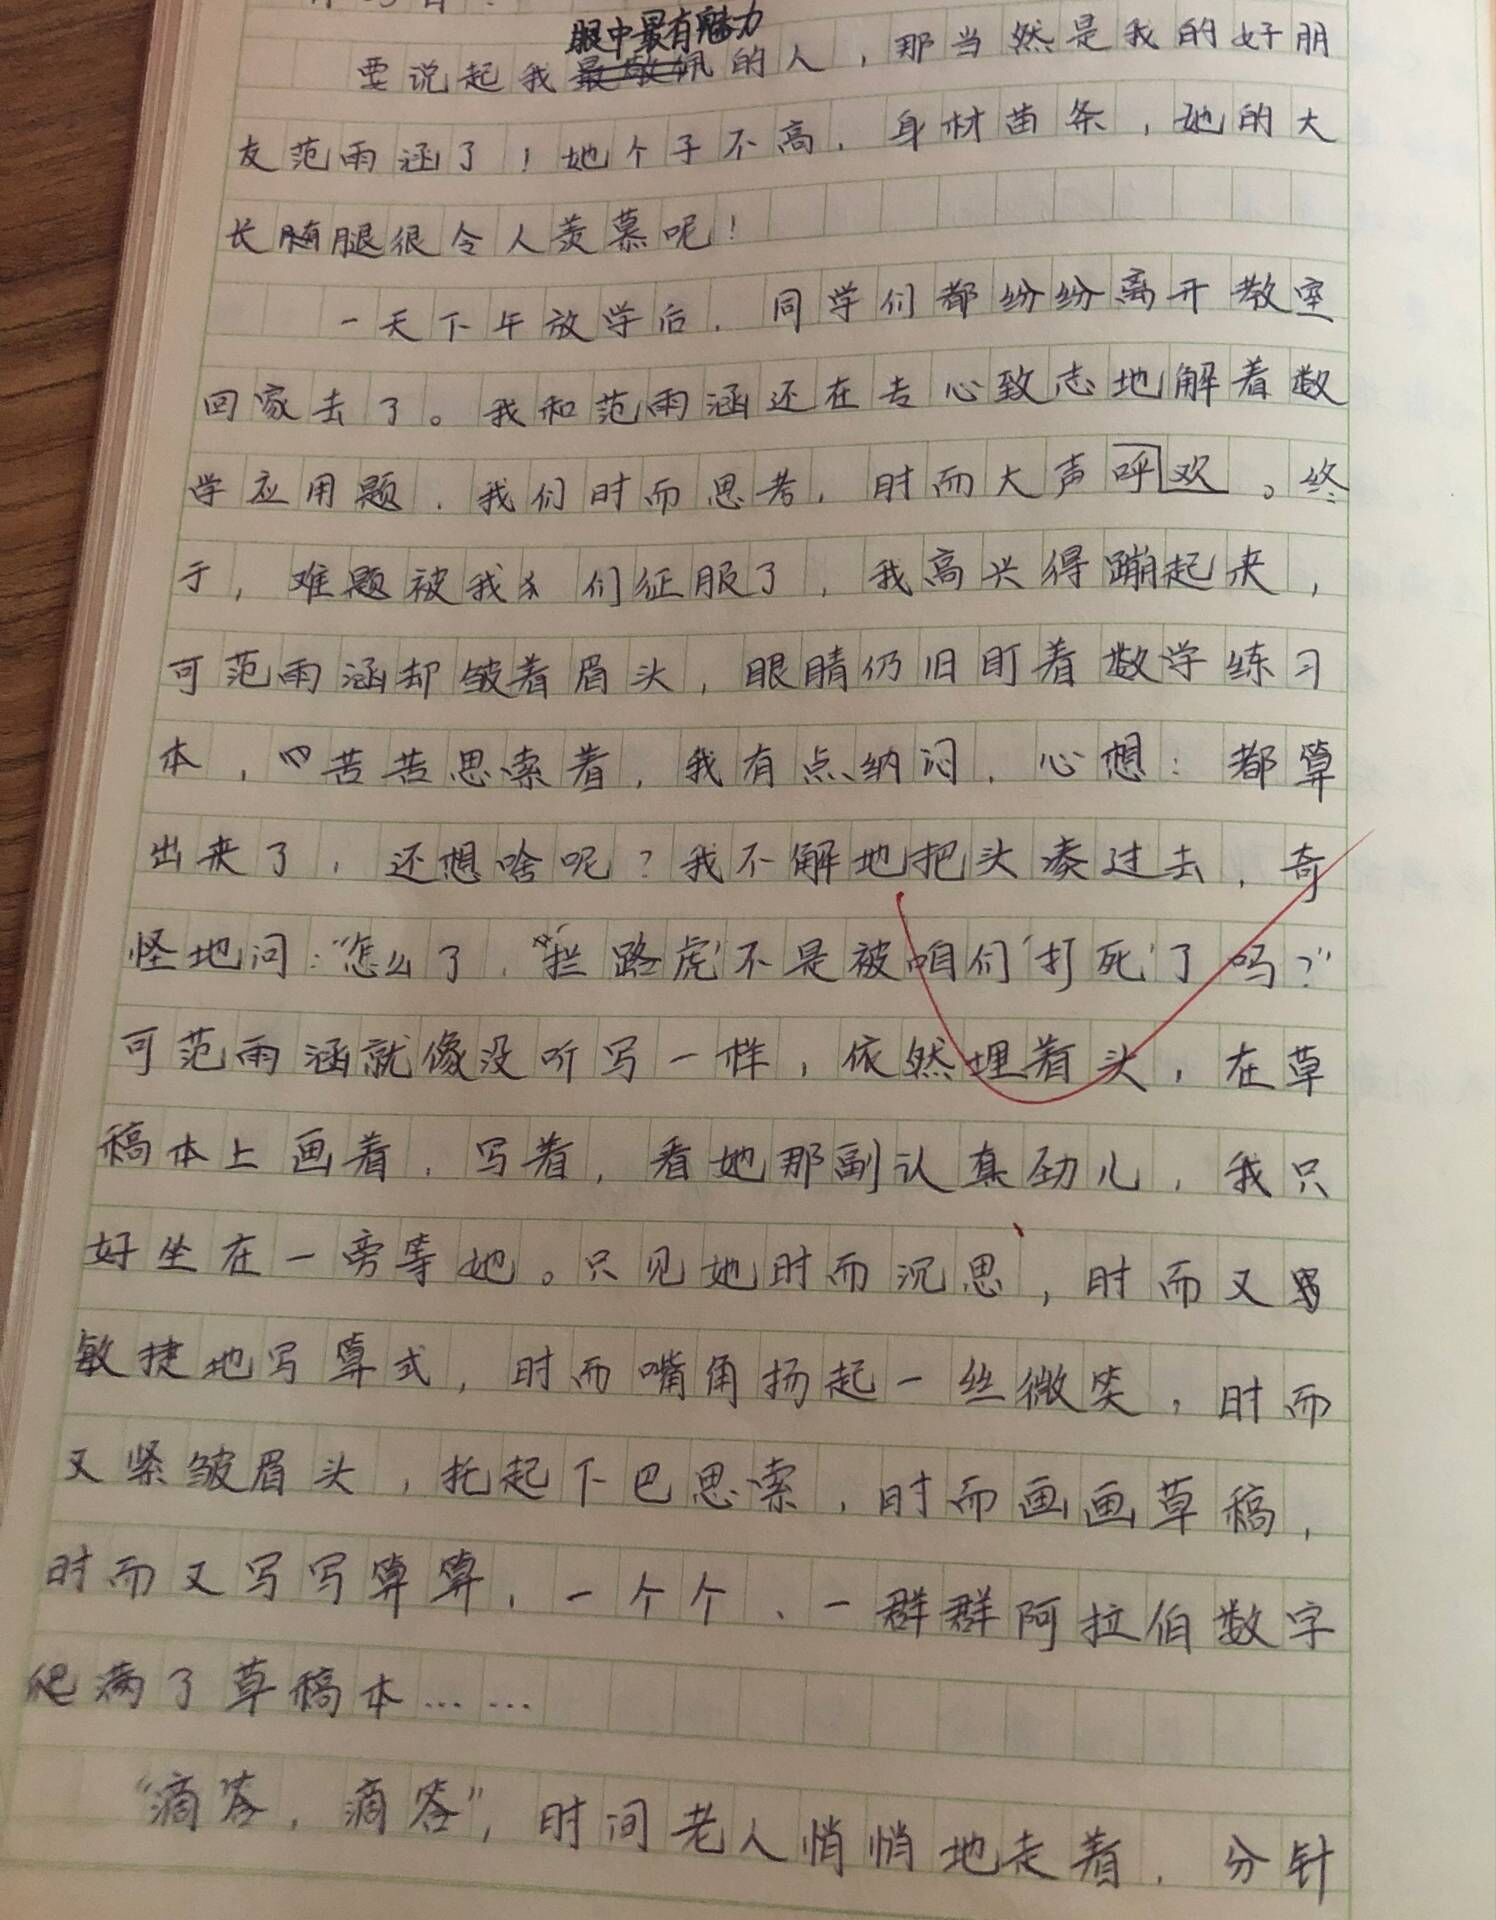 眼中最有魅力
要说起我最敬佩的人，那当然是我的好朋
友范雨涵了！她个子不高，身材苗条，她的大
长腿很令人羡慕呢！
一天下午放学后，同学们都纷纷离开教室
回家去了。我和范雨涵还在专心致志地解着数
学应用题，我们时而思考，时而大声呼欢。终
于，难题被我们征服了，我高兴得蹦起来，
可范雨涵却皱着眉头，眼睛仍旧盯着数学练习
本，苦苦思索着，我有点纳闷，心想：都算
出来了，还想啥呢？我不解地把头凑过去，奇
怪地问：“怎么了，“拦路虎”不是被咱们‘打死’了吗？”
可范雨涵就像没听写一样，依然埋着头，在草
稿本上画着，写着，看她那副认真劲儿，我只
好坐在一旁等她。只见她时而沉思，时而又
敏捷地写算式，时而嘴角扬起一丝微笑，时而
又紧皱眉头，托起下巴思索，时而画画草稿，
时而又写写算算，一个个、一群群阿拉伯数字
爬满了草稿本……
“滴答，滴答”，时间老人悄悄地走着，分针